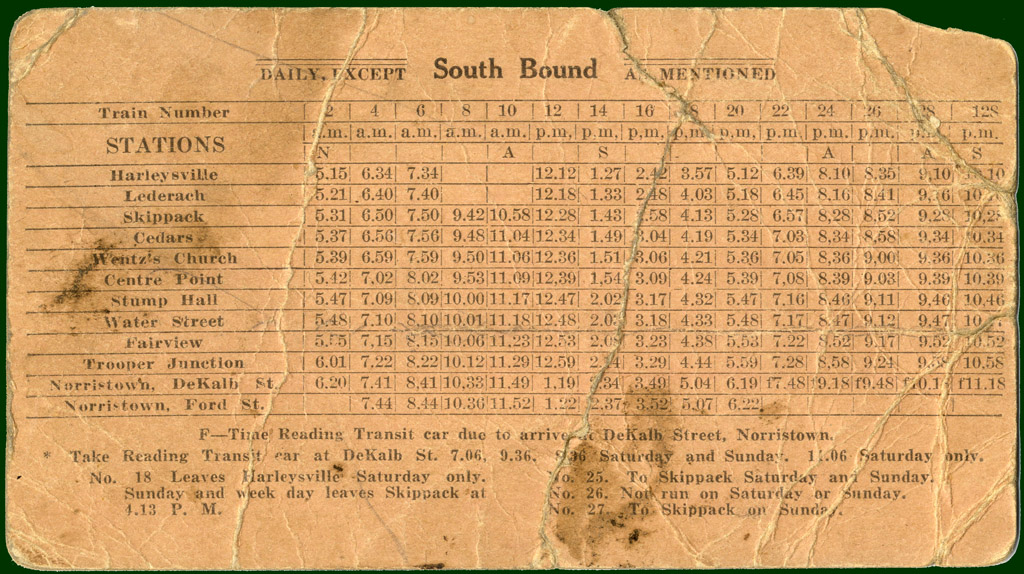 DAILY, EXCEPT South Bound AS MENTIONED
Train Number 2 4 6 8 10 12 14 16 18 20 22 24 26 28 128
STATIONS a.m. a.m. a.m. a.m. a.m. p.m. p.m. p.m. p.m. p.m. p.m. p.m. p.m. p.m. p.m.
N A S A A S
Harleysville 5.15 6.34 7.34 12.12 1.27 2.42 3.57 5.12 6.39 8.10 8.35 9.10
Lederach 5.21 6.40 7.40 12.18 1.33 2.48 4.03 5.18 6.45 8.16 8.41 9.16
Skippack 5.31 6.50 7.50 9.42 10.58 12.28 1.43 2.58 4.13 5.28 6.57 8.28 8.52 9.28 10.28
Cedars 5.37 6.56 7.56 9.48 11.04 12.34 1.49 3.04 4.19 5.34 7.03 8.34 8.58 9.34 10.34
Wentz's Church 5.39 6.59 7.59 9.50 11.06 12.36 1.51 3.06 4.21 5.36 7.05 8.36 9.00 9.36 10.36
Centre Point 5.42 7.02 8.02 9.53 11.09 12.39 1.54 3.09 4.24 5.39 7.08 8.39 9.03 9.39 10.39
Stump Hall 5.47 7.09 8.09 10.00 11.17 12.47 2.02 3.17 4.32 5.47 7.16 8.46 9.11 9.46 10.46
Water Street 5.48 7.10 8.10 10.01 11.18 12.48 2.03 3.18 4.33 5.48 7.17 8.47 9.12 9.47
Fairview 5.55 7.15 8.15 10.06 11.23 12.53 2.08 3.23 4.38 5.53 7.22 8.52 9.17 9.52 10.52
Trooper Junction 6.01 7.22 8.22 10.12 11.29 12.59 3.29 4.44 5.59 7.28 8.58 9.24 9.58 10.58
Norristown, DeKalb St. 6.20 7.41 8.41 10.33 11.49 1.19 2.34 3.49 5.04 6.19 f7.48 f9.18 f9.48 f10.18 f11.18
Norristown, Ford St. 7.44 8.44 10.36 11.52 1.22 2.37 3.52 5.07 6.22
F—Time Reading Transit car due to arrive at DeKalb Street, Norristown.
* Take Reading Transit car at DeKalb St. 7.06, 9.36, Saturday and Sunday. 11.06 Saturday only.
No. 18 Leaves Harleysville Saturday only.
Sunday and week day leaves Skippack at
4.13 P. M.
No. 25. To Skippack Saturday and Sunday.
No. 26. Not run on Saturday or Sunday.
No. 27. To Skippack on Sunday.